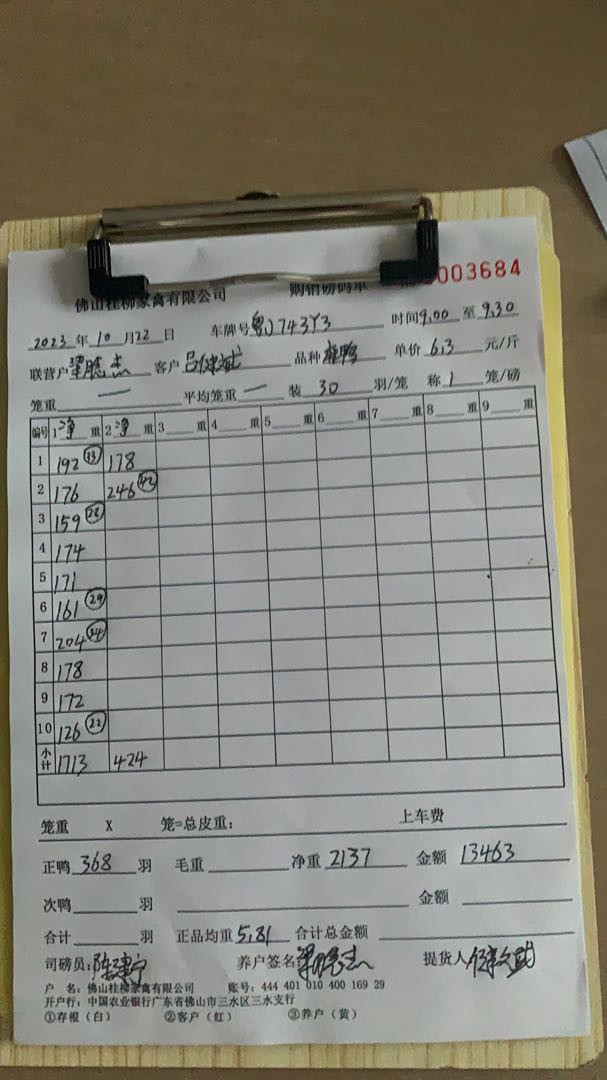 佛山桂柳家禽有限公司 购销磅码单 0003684
2023 年 10 月 22 日 车牌号 粤J743Y3 时间 9,00 至 9,30
联营户 梁聪杰 客户 品种 单价 6.3 元/斤
笼重 一 平均笼重 一 装 30 羽/笼 称 1 笼/磅
编号 1 净 重 2 净 重 3 重 4 重 5 重 6 重 7 重 8 重 9 重
1 192 178
2 176 246 42
3 159 28
4 174
5 171
6 161 29
7 204 34
8 178
9 172
10 126 22
小计 1713 424
笼重 X 笼=总皮重： 上车费
正鸭 368 羽 毛重 净重 2137 金额 13463
次鸭 羽 金额
合计 羽 正品均重 5,81 合计总金额
司磅员: 养户签名 梁聪杰 提货人
户 名：佛山桂柳家禽有限公司 账号：444 401 010 400 169 29
开户行：中国农业银行广东省佛山市三水区三水支行
①存根（白） ②客户（红） ③养户（黄）